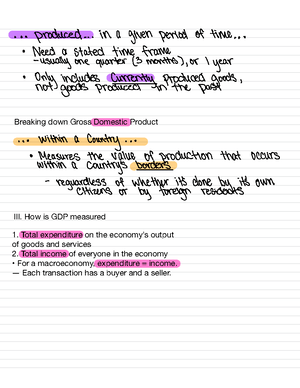 ... produced... in a given period of time...
• Need a stated time frame
- usually one quarter (3 months), or 1 year
• Only includes Currently produced goods,
not goods produced in the past
Breaking down Gross Domestic Product
... within a Country ...
• Measures the value of production that occurs
within a country's borders
- regardless of whether it's done by it's own
citizens or by foreign residents
III. How is GDP measured
1. Total expenditure on the economy's output
of goods and services
2. Total income of everyone in the economy
• For a macroeconomy, expenditure = income.
— Each transaction has a buyer and a seller.